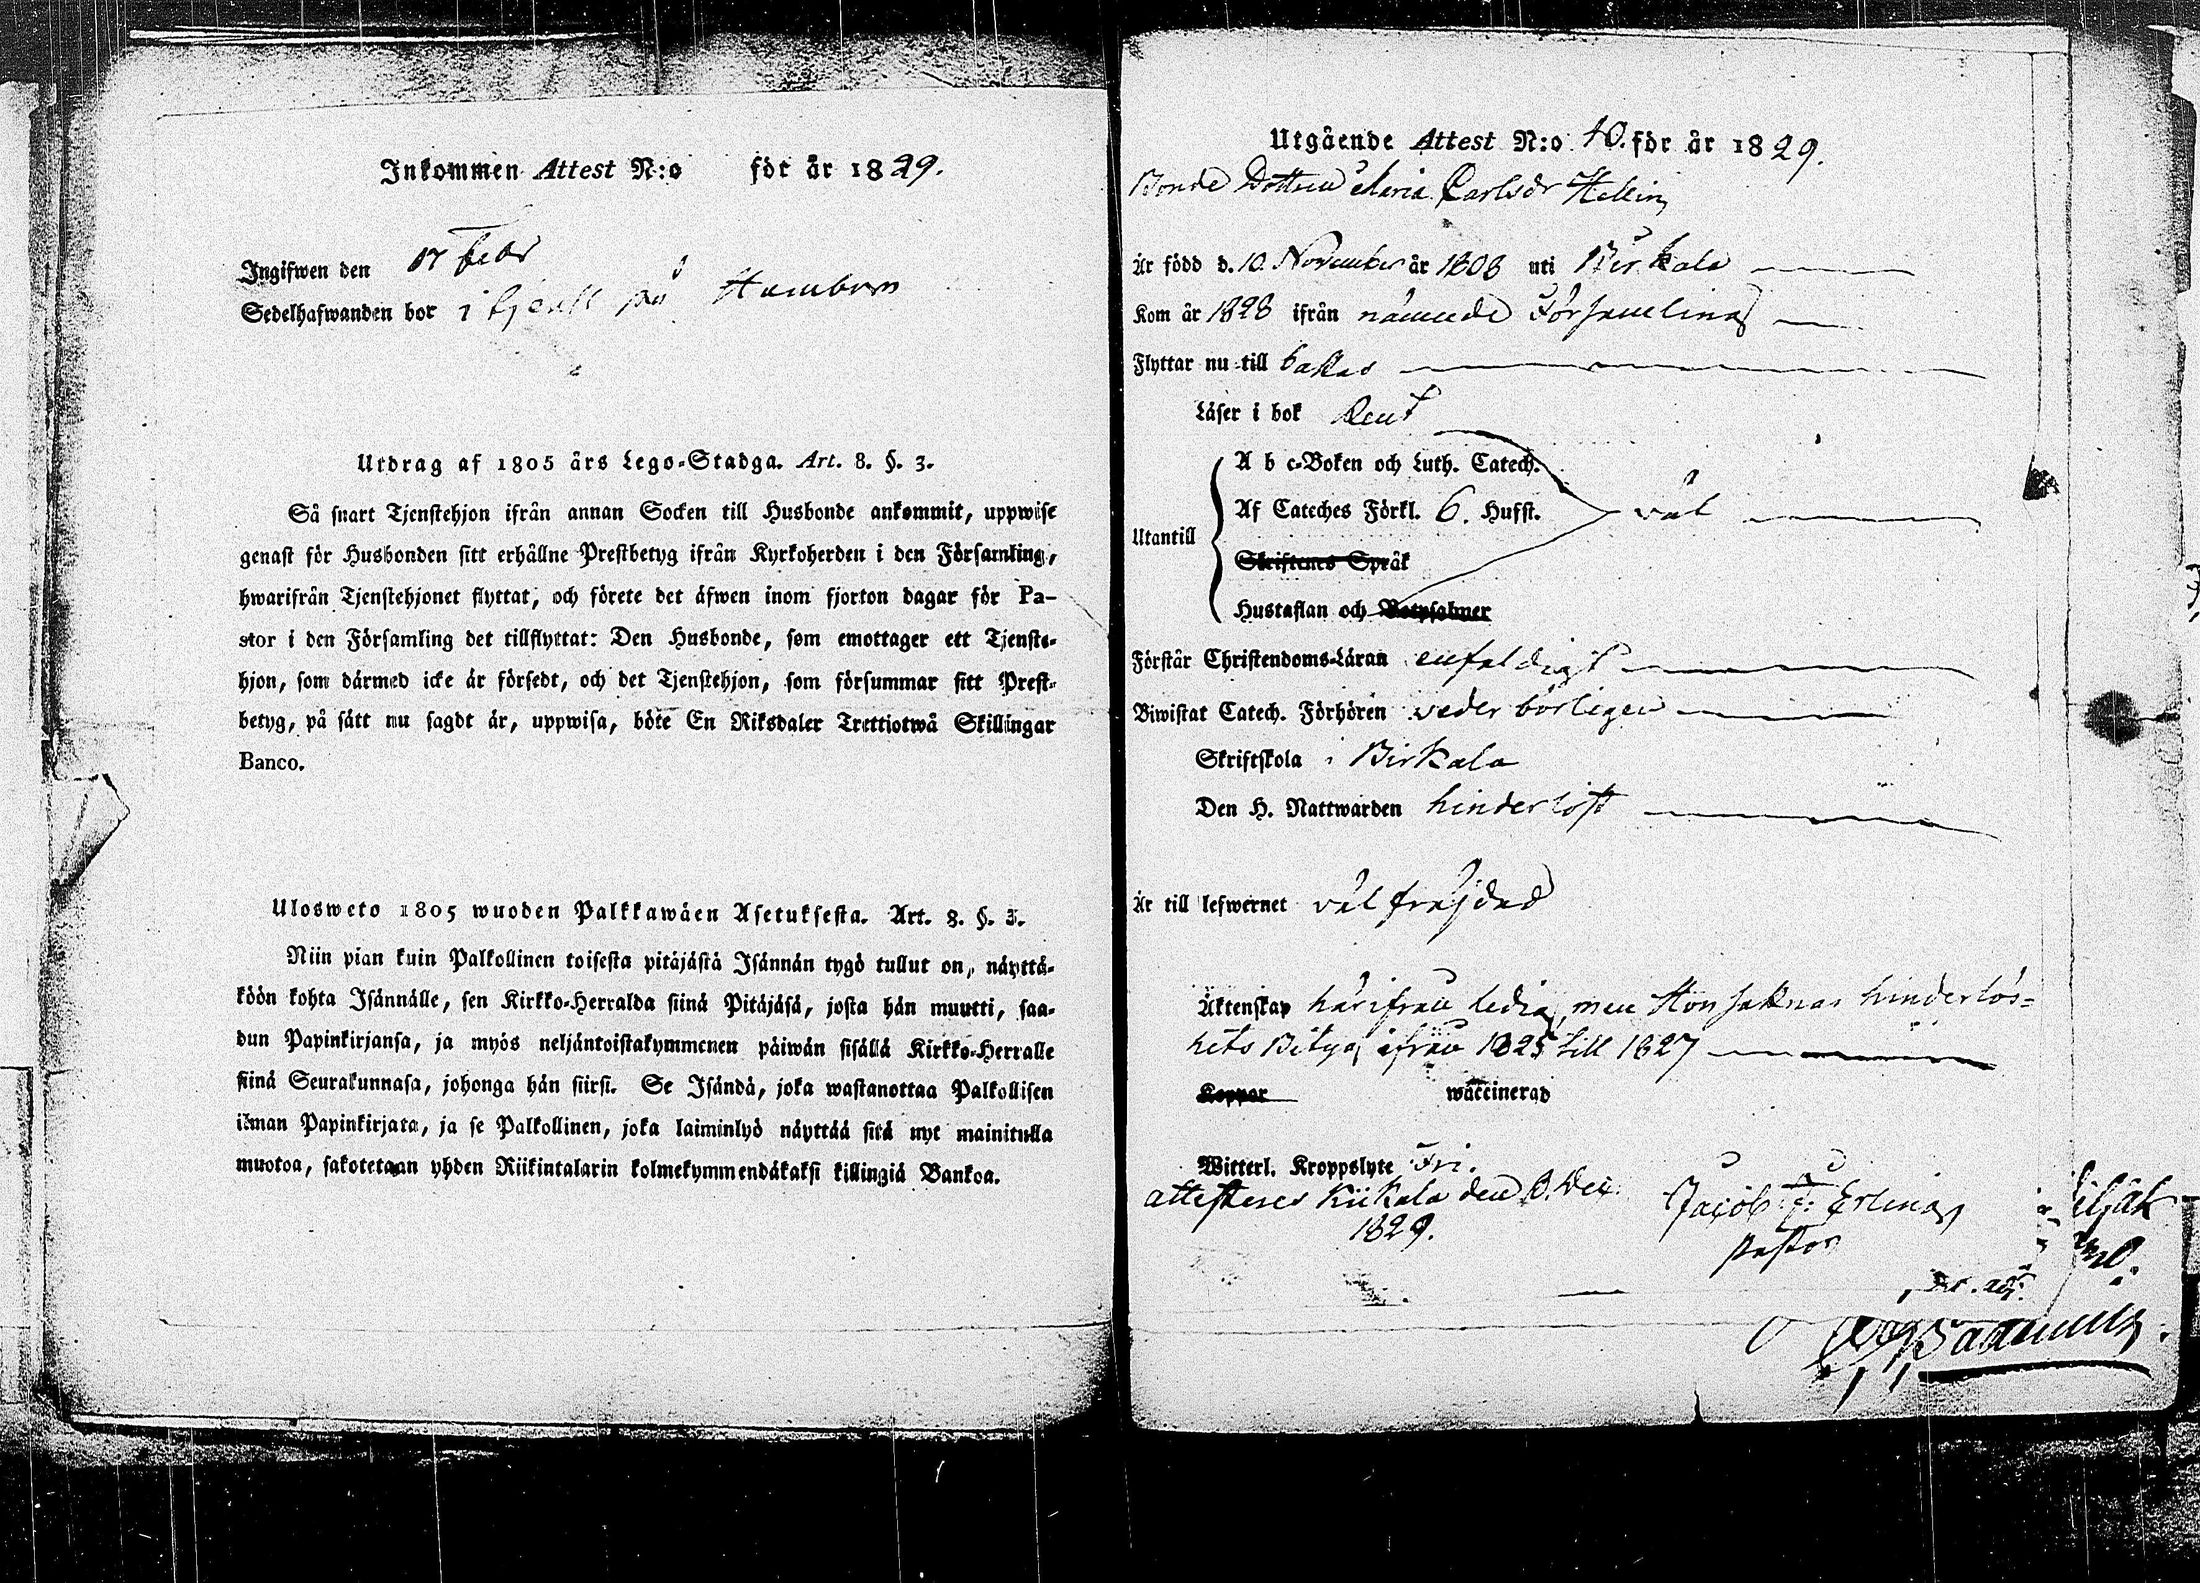 Inkommen Attest N:o för år 1829.
Ingifwen den 17 Febr
Sedelhafwanden bor i tjenst på
Utdrag af 1805 års Lego-Stadga. Art. 8. §. 3.
Så snart Tjenstehjon ifrån annan Socken till Husbonde ankommit, uppwise
genast för Husbonden sitt erhållne Prestbetyg ifrån Kyrkoherden i den Församling,
hwarifrån Tjenstehjonet flyttat, och förete det äfwen inom fjorton dagar för Pa-
stor i den Församling det tillflyttat: Den Husbonde, som emottager ett Tjenste-
hjon, som därmed icke är försedt, och det Tjenstehjon, som försummar sitt Prest-
betyg, på sätt nu sagdt är, uppwisa, böte En Riksdaler Trettiotwå Skillingar
Banco.
Ulosweto 1805 wuoden Palkkawäen Asetuksesta. Art. 8. §. 3.
Niin pian kuin Palkollinen toisesta pitäjästä Isännän tygö tullut on, näyttä-
köön kohta Isännälle, sen Kirkko-Herralda siinä Pitäjäsä, josta hän muutti, saa-
dun Papinkirjansa, ja myös neljäntoistakymmenen päiwän sisällä Kirkko-Herralle
siinä Seurakunnasa, johonga hän siirsi. Se Isändä, joka wastanottaa Palkollisen
ilman Papinkirjata, ja se Palkollinen, joka laiminlyö näyttää sitä nyt mainitulla
muotoa, sakotetaan yhden Riikintalarin kolmekymmendäkaksi killingiä Bankoa.
Utgående Attest N:o 40. för år 1829.
Bonde Dottren Maria Carlsdr Hellin
Är född d. 10. November år 1808 uti Birkala
Kom år 1828 ifrån nämnde Församling
Flyttar nu till bakas
Läser i bok Rent
A b c-Boken och Luth. Catech.
Af Cateches Förkl. 6. Hufst. väl
Utantill
Skriftenes Språk
Hustaflan och Botpsalmer
Förstår Christendoms-Läran enfaldigt
Biwistat Catech. Förhören vederbörligen
Skriftskola i Birkala
Den H. Nattwarden hinderlöst
Är till lefwernet väl frejdad
Äktenskap härifrån ledig, men Hon saknar hinderlös-
hets Betyg ifrån 1825 till 1827
Koppor waccinerad
Witterl. Kroppslyte Fri.
attesteres Kiikala den 8. Dec.
1829.
Jacob F: Erling
Pastor